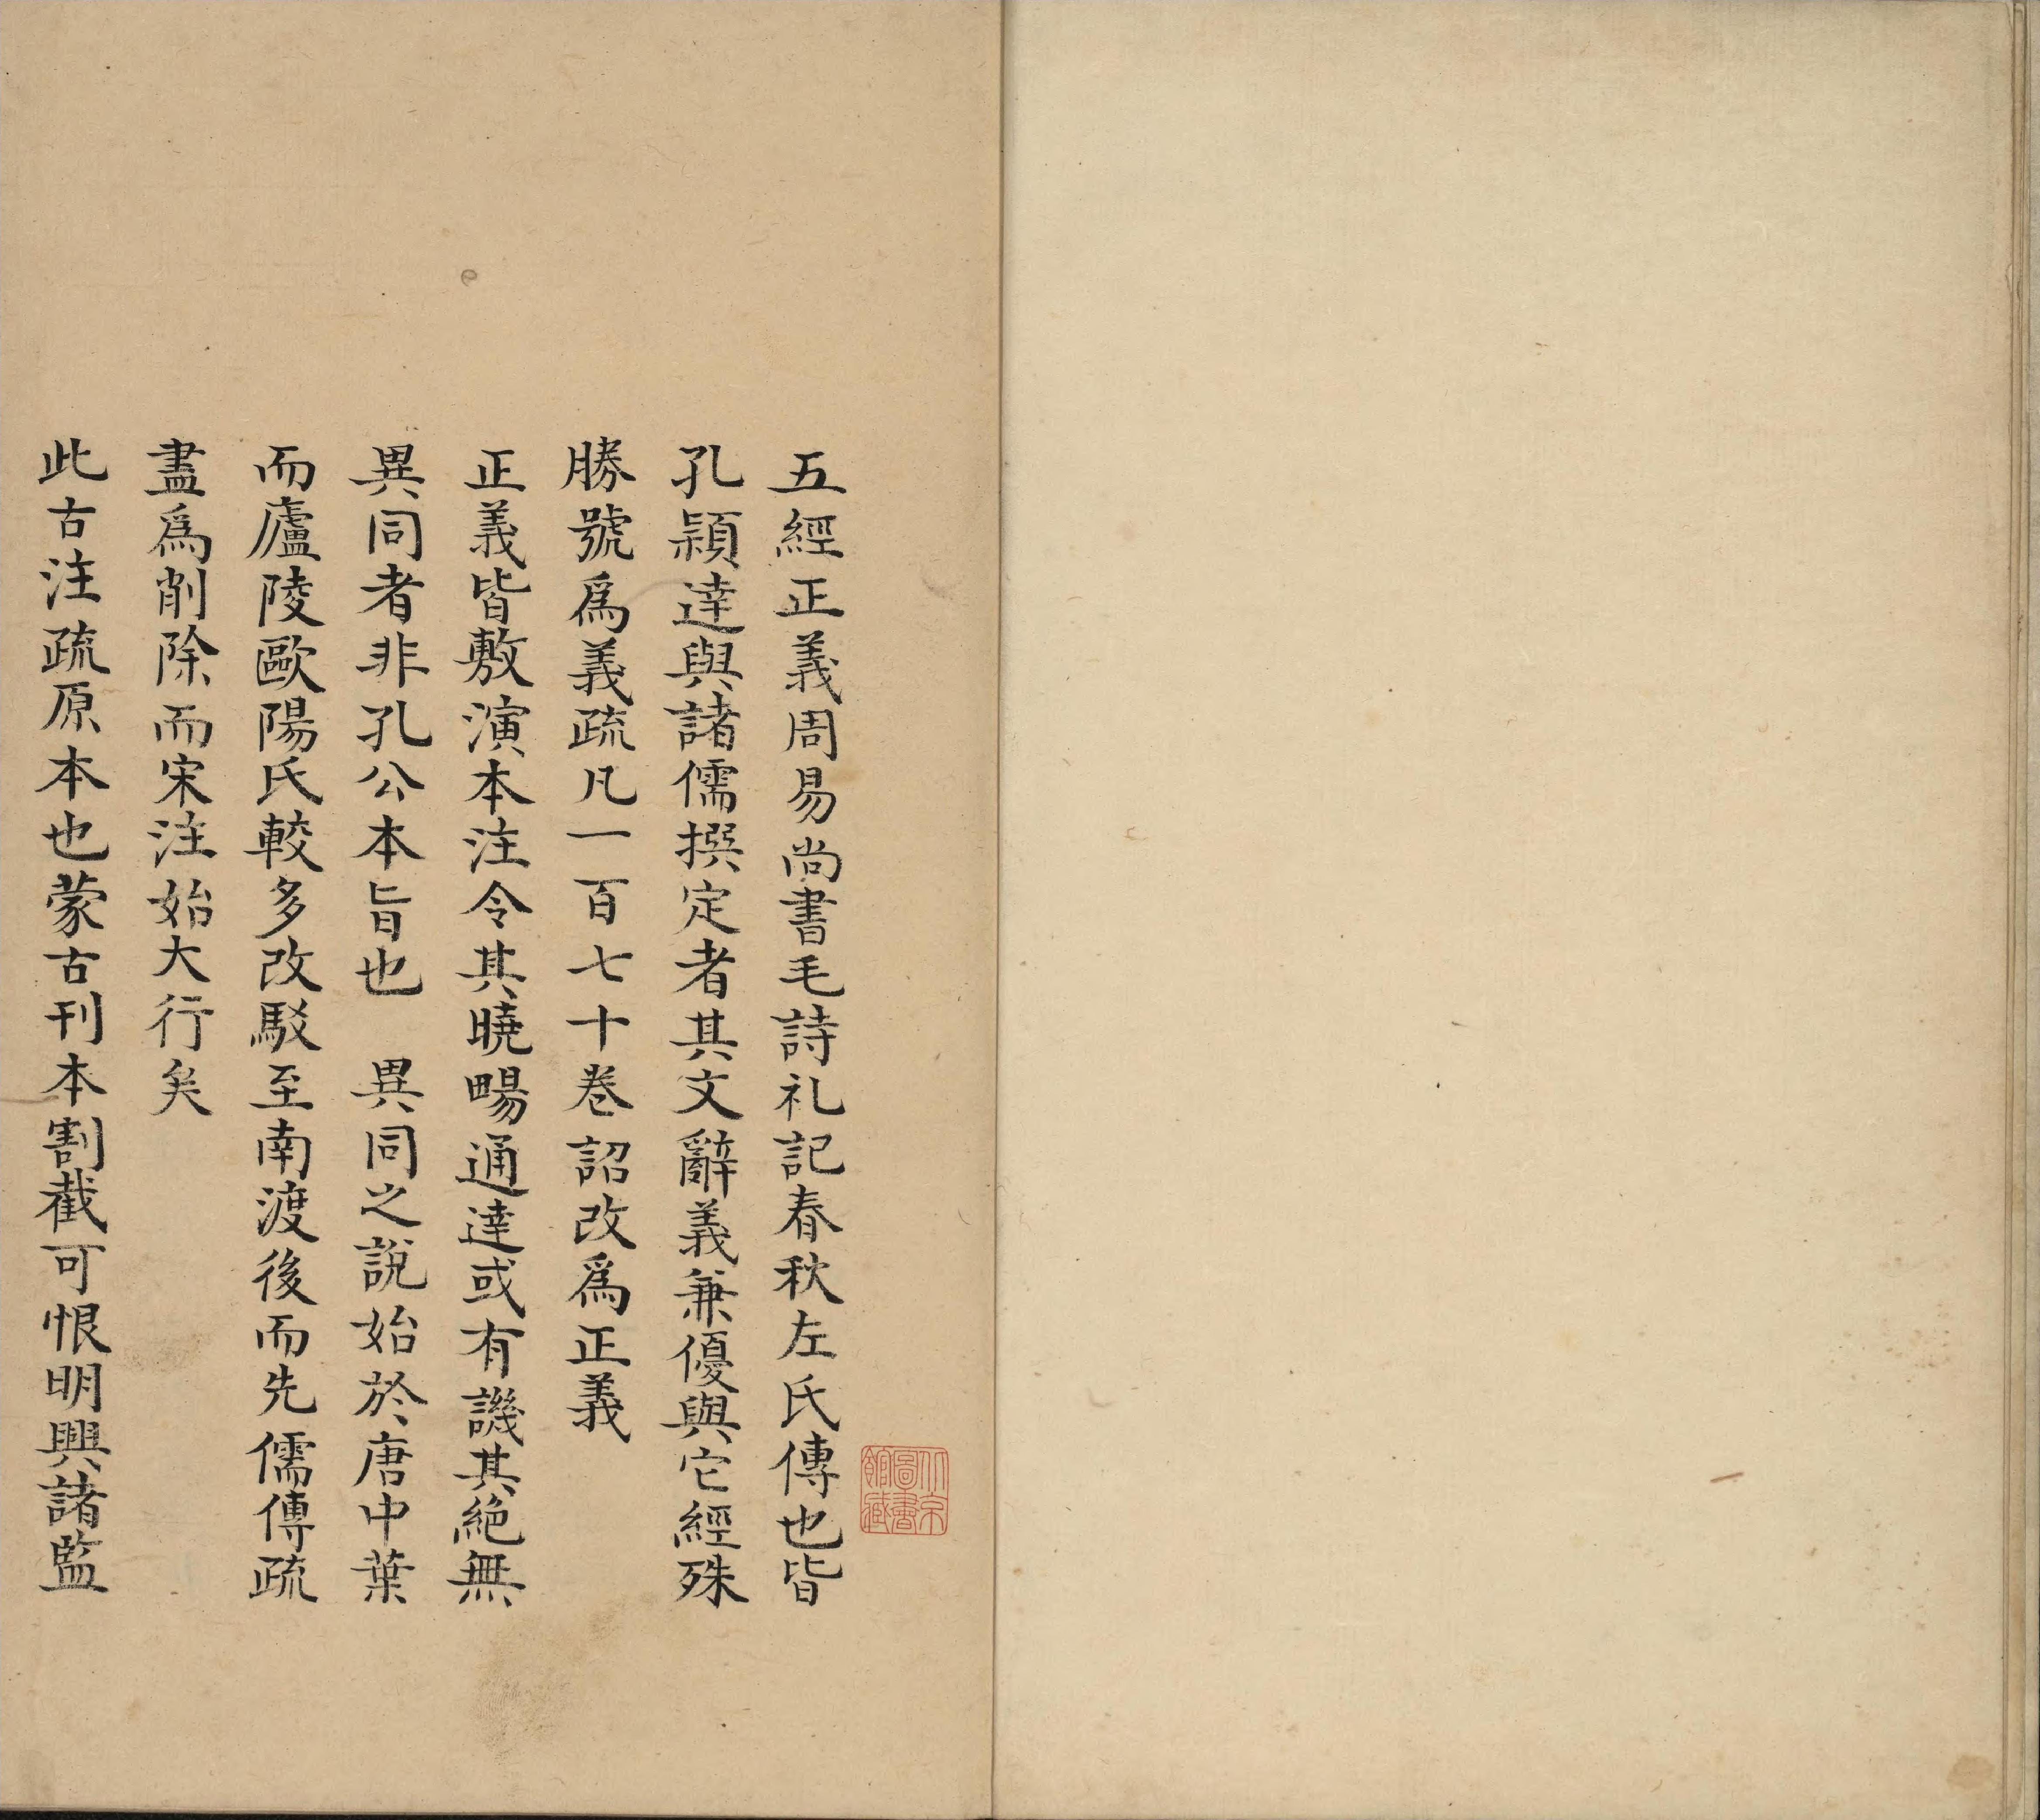 五經正義周易尚書毛詩礼記春秋左氏傳也皆
孔穎達與諸儒撰定者其文辭義兼優與它經殊
勝號爲義疏凡一百七十卷詔改爲正義
正義皆敷演本注令其曉暢通達或有譏其絶無
異同者非孔公本旨也　異同之説始於唐中葉
而廬陵歐陽氏較多改駁至南渡後而先儒傳疏
盡爲削除而宋注始大行矣
此古注疏原本也蒙古刊本割截可恨明興諸監
北京圖書館藏